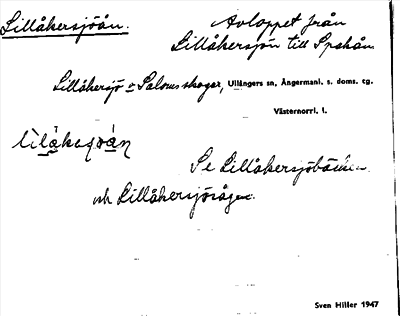 Lillåkersjöån.
Avloppet från
Lillåkersjön till Spakån
Lillåkersjö o Salomsskogar, Ullångers sn, Ångermanl. s. doms. tg.
Västernorrl. l.
Se Lillåkersjöbäcken
och Lillåkersjösågen.
Sven Hiller 1947